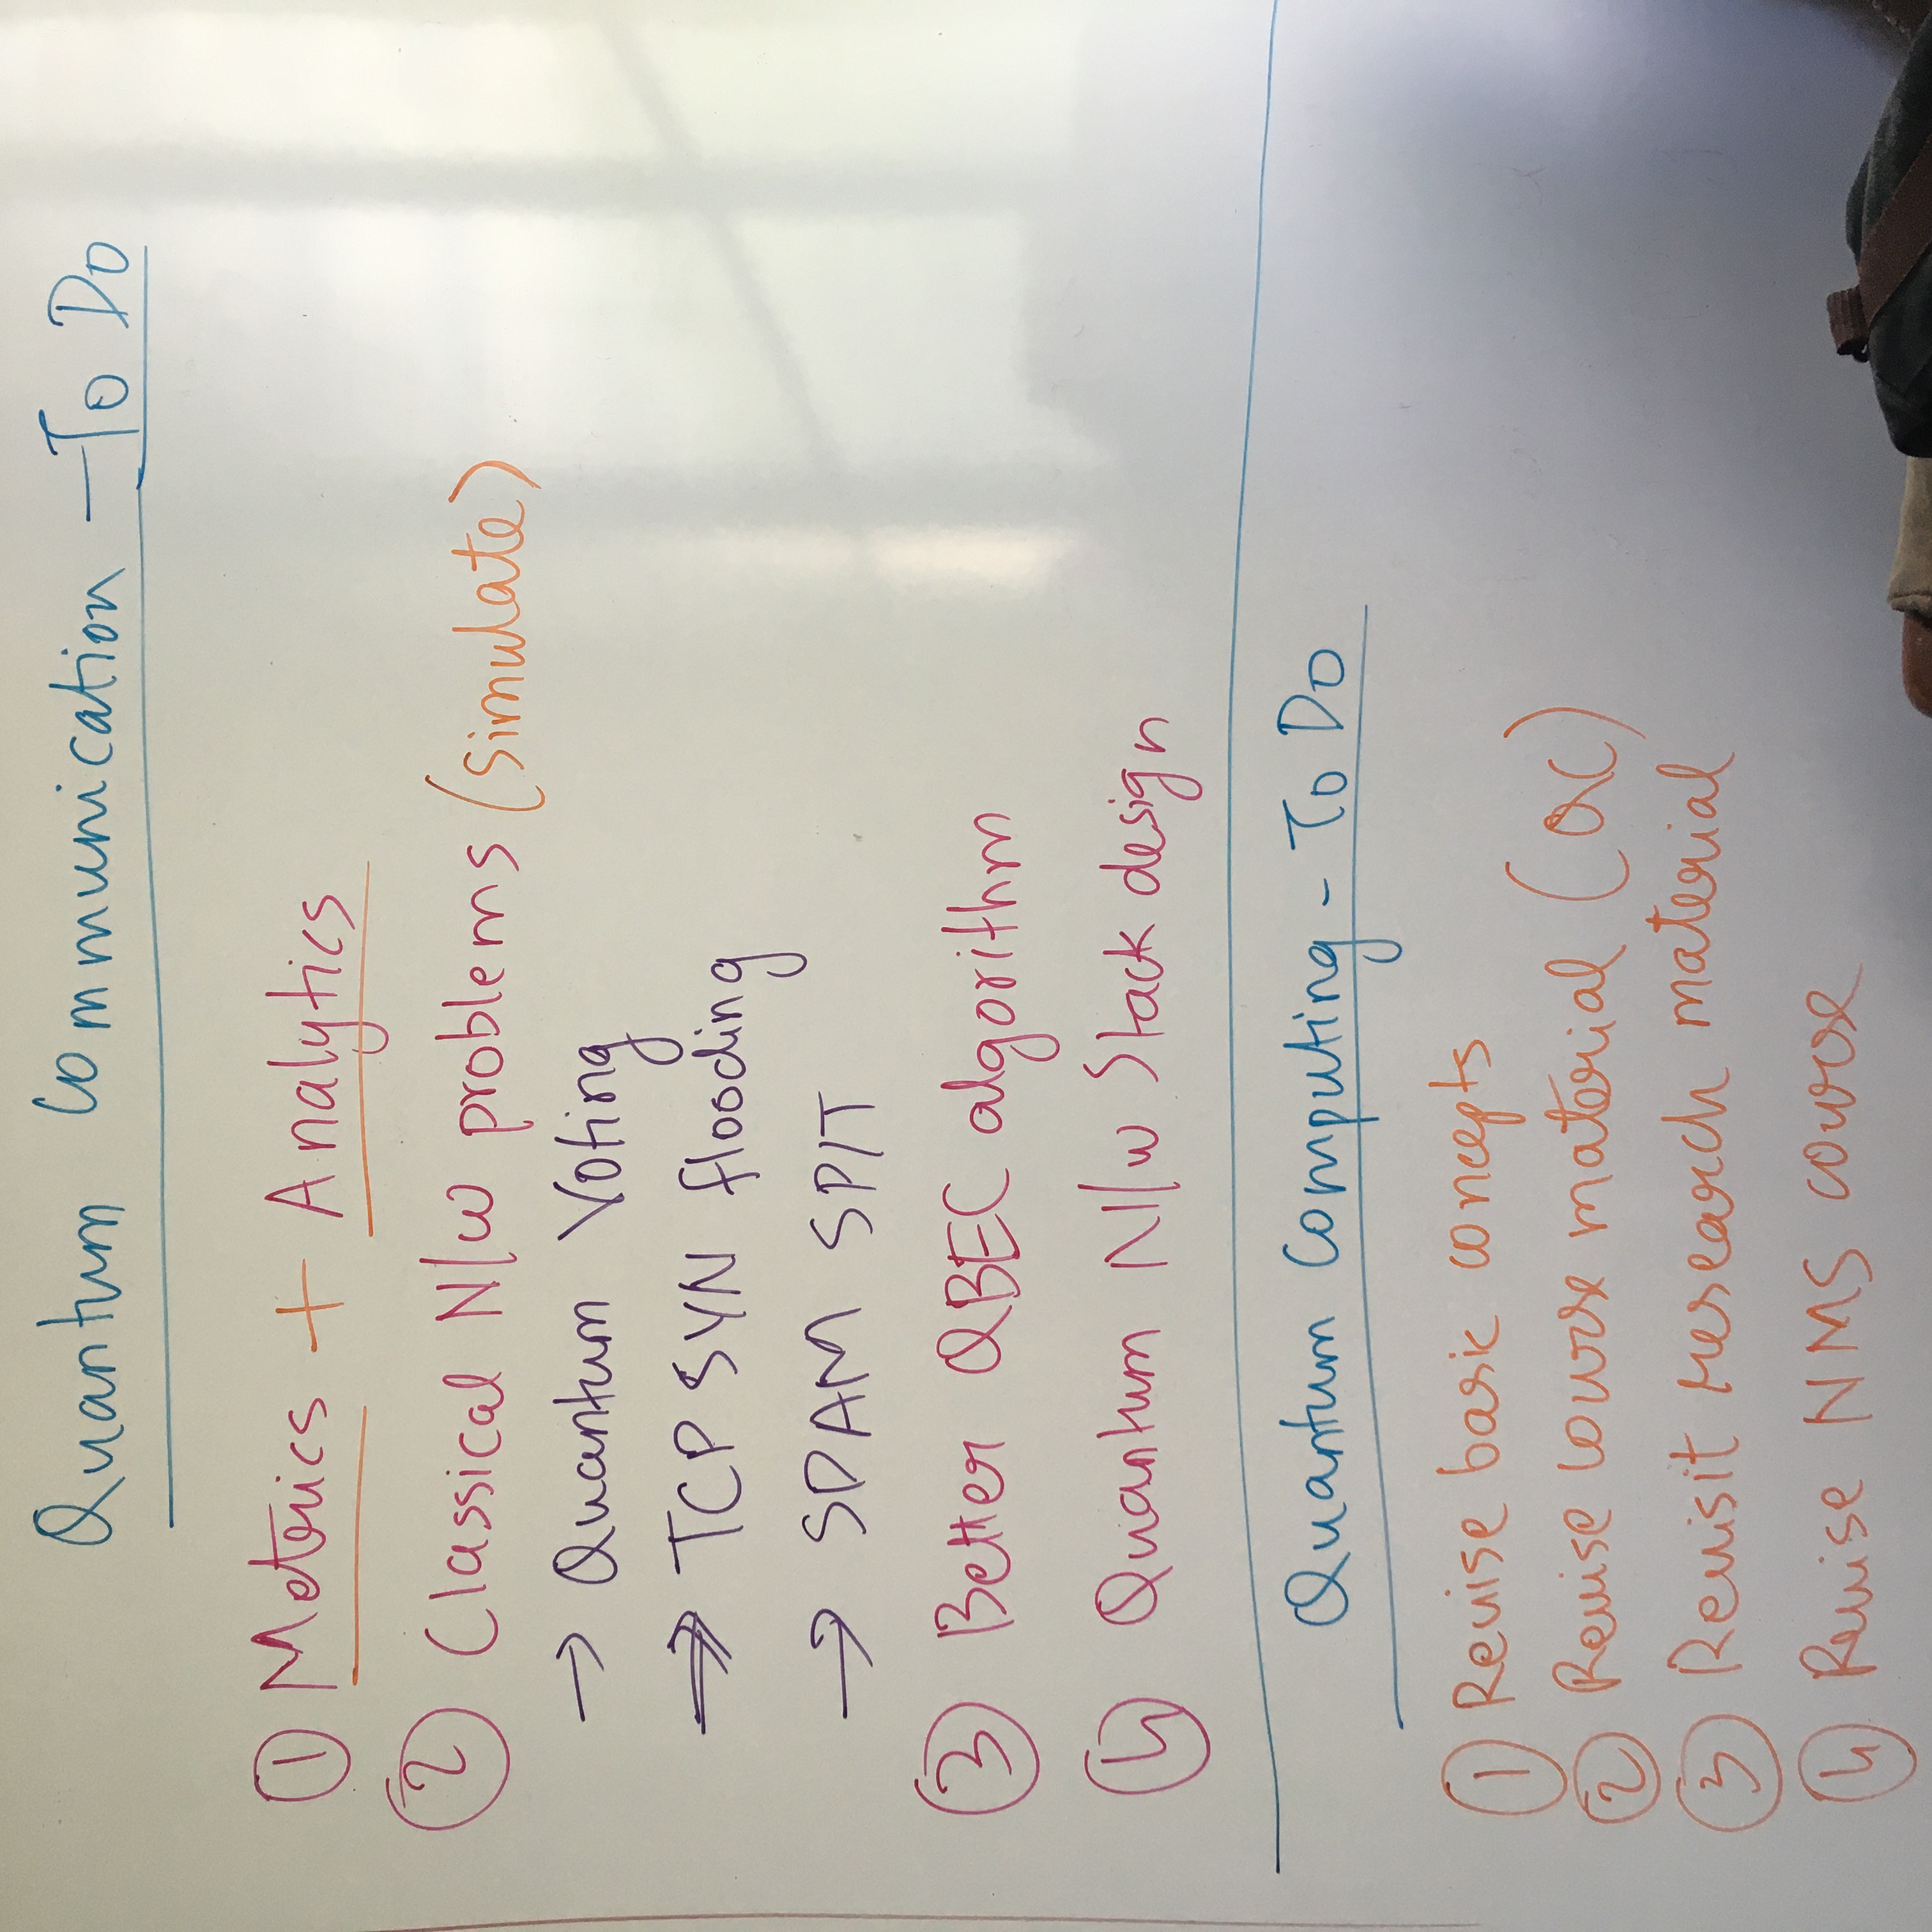 Quantum Communication - To Do
① Metrics + Analytics
② Classical N/w problems (simulate)
→ Quantum Voting
⇒ TCP SYN flooding
→ SPAM SPIT
③ Better QBEC algorithm
④ Quantum N/w Stack design
Quantum Computing - To Do
① Revise basic concepts
② Revise course material (QC)
③ Revisit research material
④ Revise NMS course